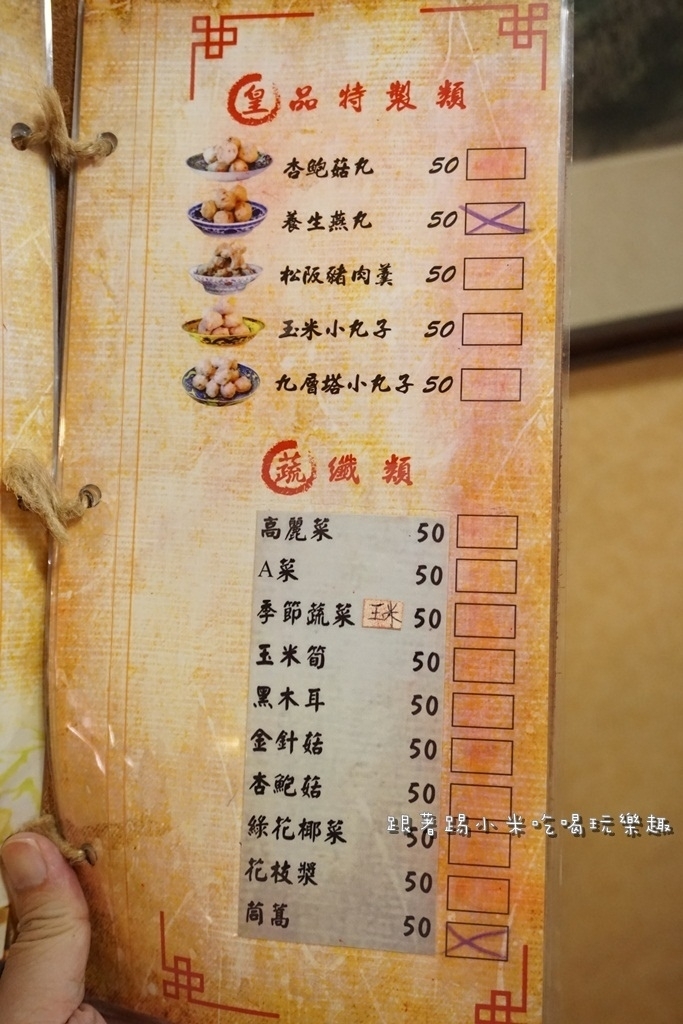 皇品特製類
杏鮑菇丸 50
養生燕丸 50
松阪豬肉羹 50
玉米小丸子 50
九層塔小丸子 50
蔬纖類
高麗菜 50
A菜 50
季節蔬菜 玉米 50
玉米筍 50
黑木耳 50
金針菇 50
杏鮑菇 50
綠花椰菜 50
跟著踢小米吃喝玩樂趣
花枝漿 50
茼蒿 50